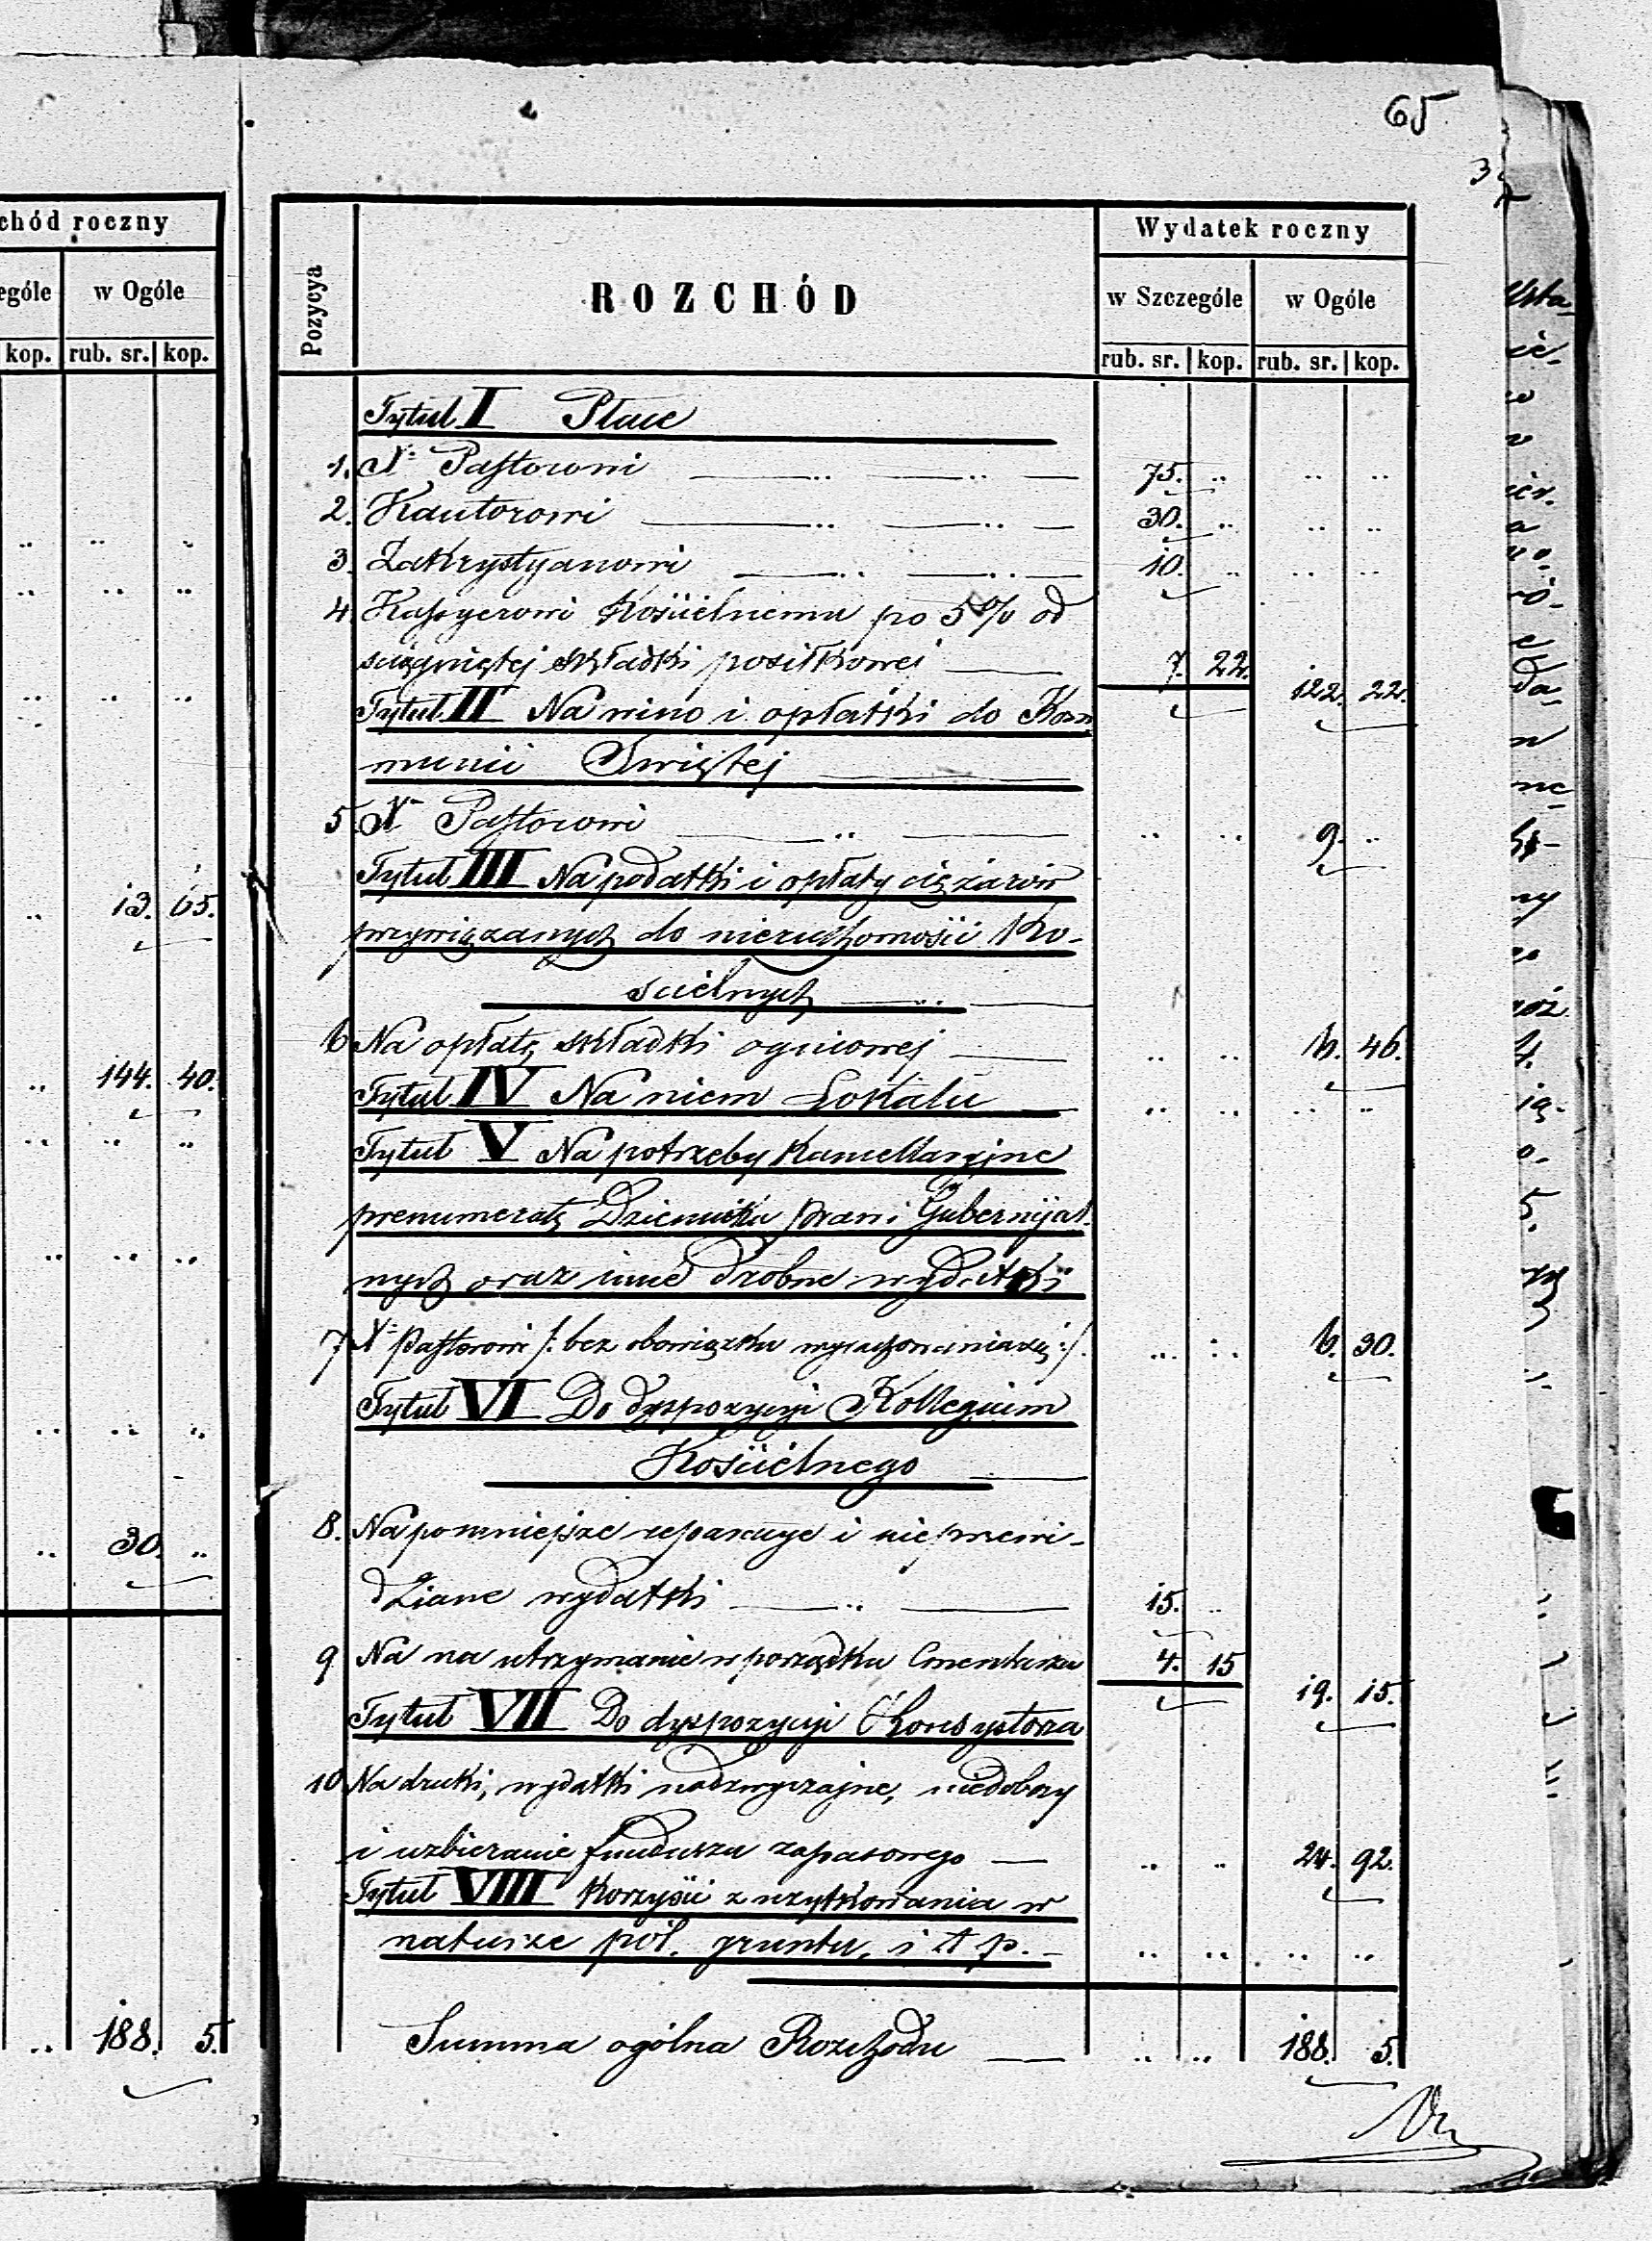 65
chód roczny
ególe w Ogóle
kop. rub. sr. kop.
13. 65.
144. 40.
30. ..
188. 5.
Pozycya
ROZCHÓD
Wydatek roczny
w Szczególe w Ogóle
rub. sr. kop. rub. sr. kop.
Tytuł I Płace
1. X. Pastorowi 75. .. .. ..
2. Kantorowi 30. .. .. ..
3. Zakrystyanowi 10. .. .. ..
4. Kassyerowi Kościelnemu po 5% od
ściągniętej składki posiłkowej 7. 22. 122. 22.
Tytuł II Na wino i opłatki do Kom-
munii Świętej
5. X. Pastorowi .. .. 9. ..
Tytuł III Na podatki i opłaty ciężarów
przywiązanych do nieruchomości Ko-
ścielnych
6 Na opłatę składki ogniowej .. .. 6. 46.
Tytuł IV Na niem Lokalu .. .. .. ..
Tytuł V Na potrzeby Kancellaryjne
prenumeratę Dziennika praw i Gubernijal-
nych oraz inne drobne wydatki
7 X. Pastorowi /: bez obowiązku wyrachowania się :/ .. .. 6. 30.
Tytuł VI Do dyspozycyi Kollegium
Kościelnego
8. Na pomniejsze reparacye i nieprzewi-
dziane wydatki 15. ..
9 Na na utrzymanie w porządku Cmentarza 4. 15 19. 15.
Tytuł VII Do dyspozycyi Konsystorza
10 Na druki, wydatki nadzwyczajne, niedobory
i uzbieranie funduszu zapasowego .. .. 24. 92.
Tytuł VIII Korzyści z użytkowania w
naturze pól, gruntu, i t p. .. .. .. ..
Summa ogólna Rozchodu .. .. 188. 5.